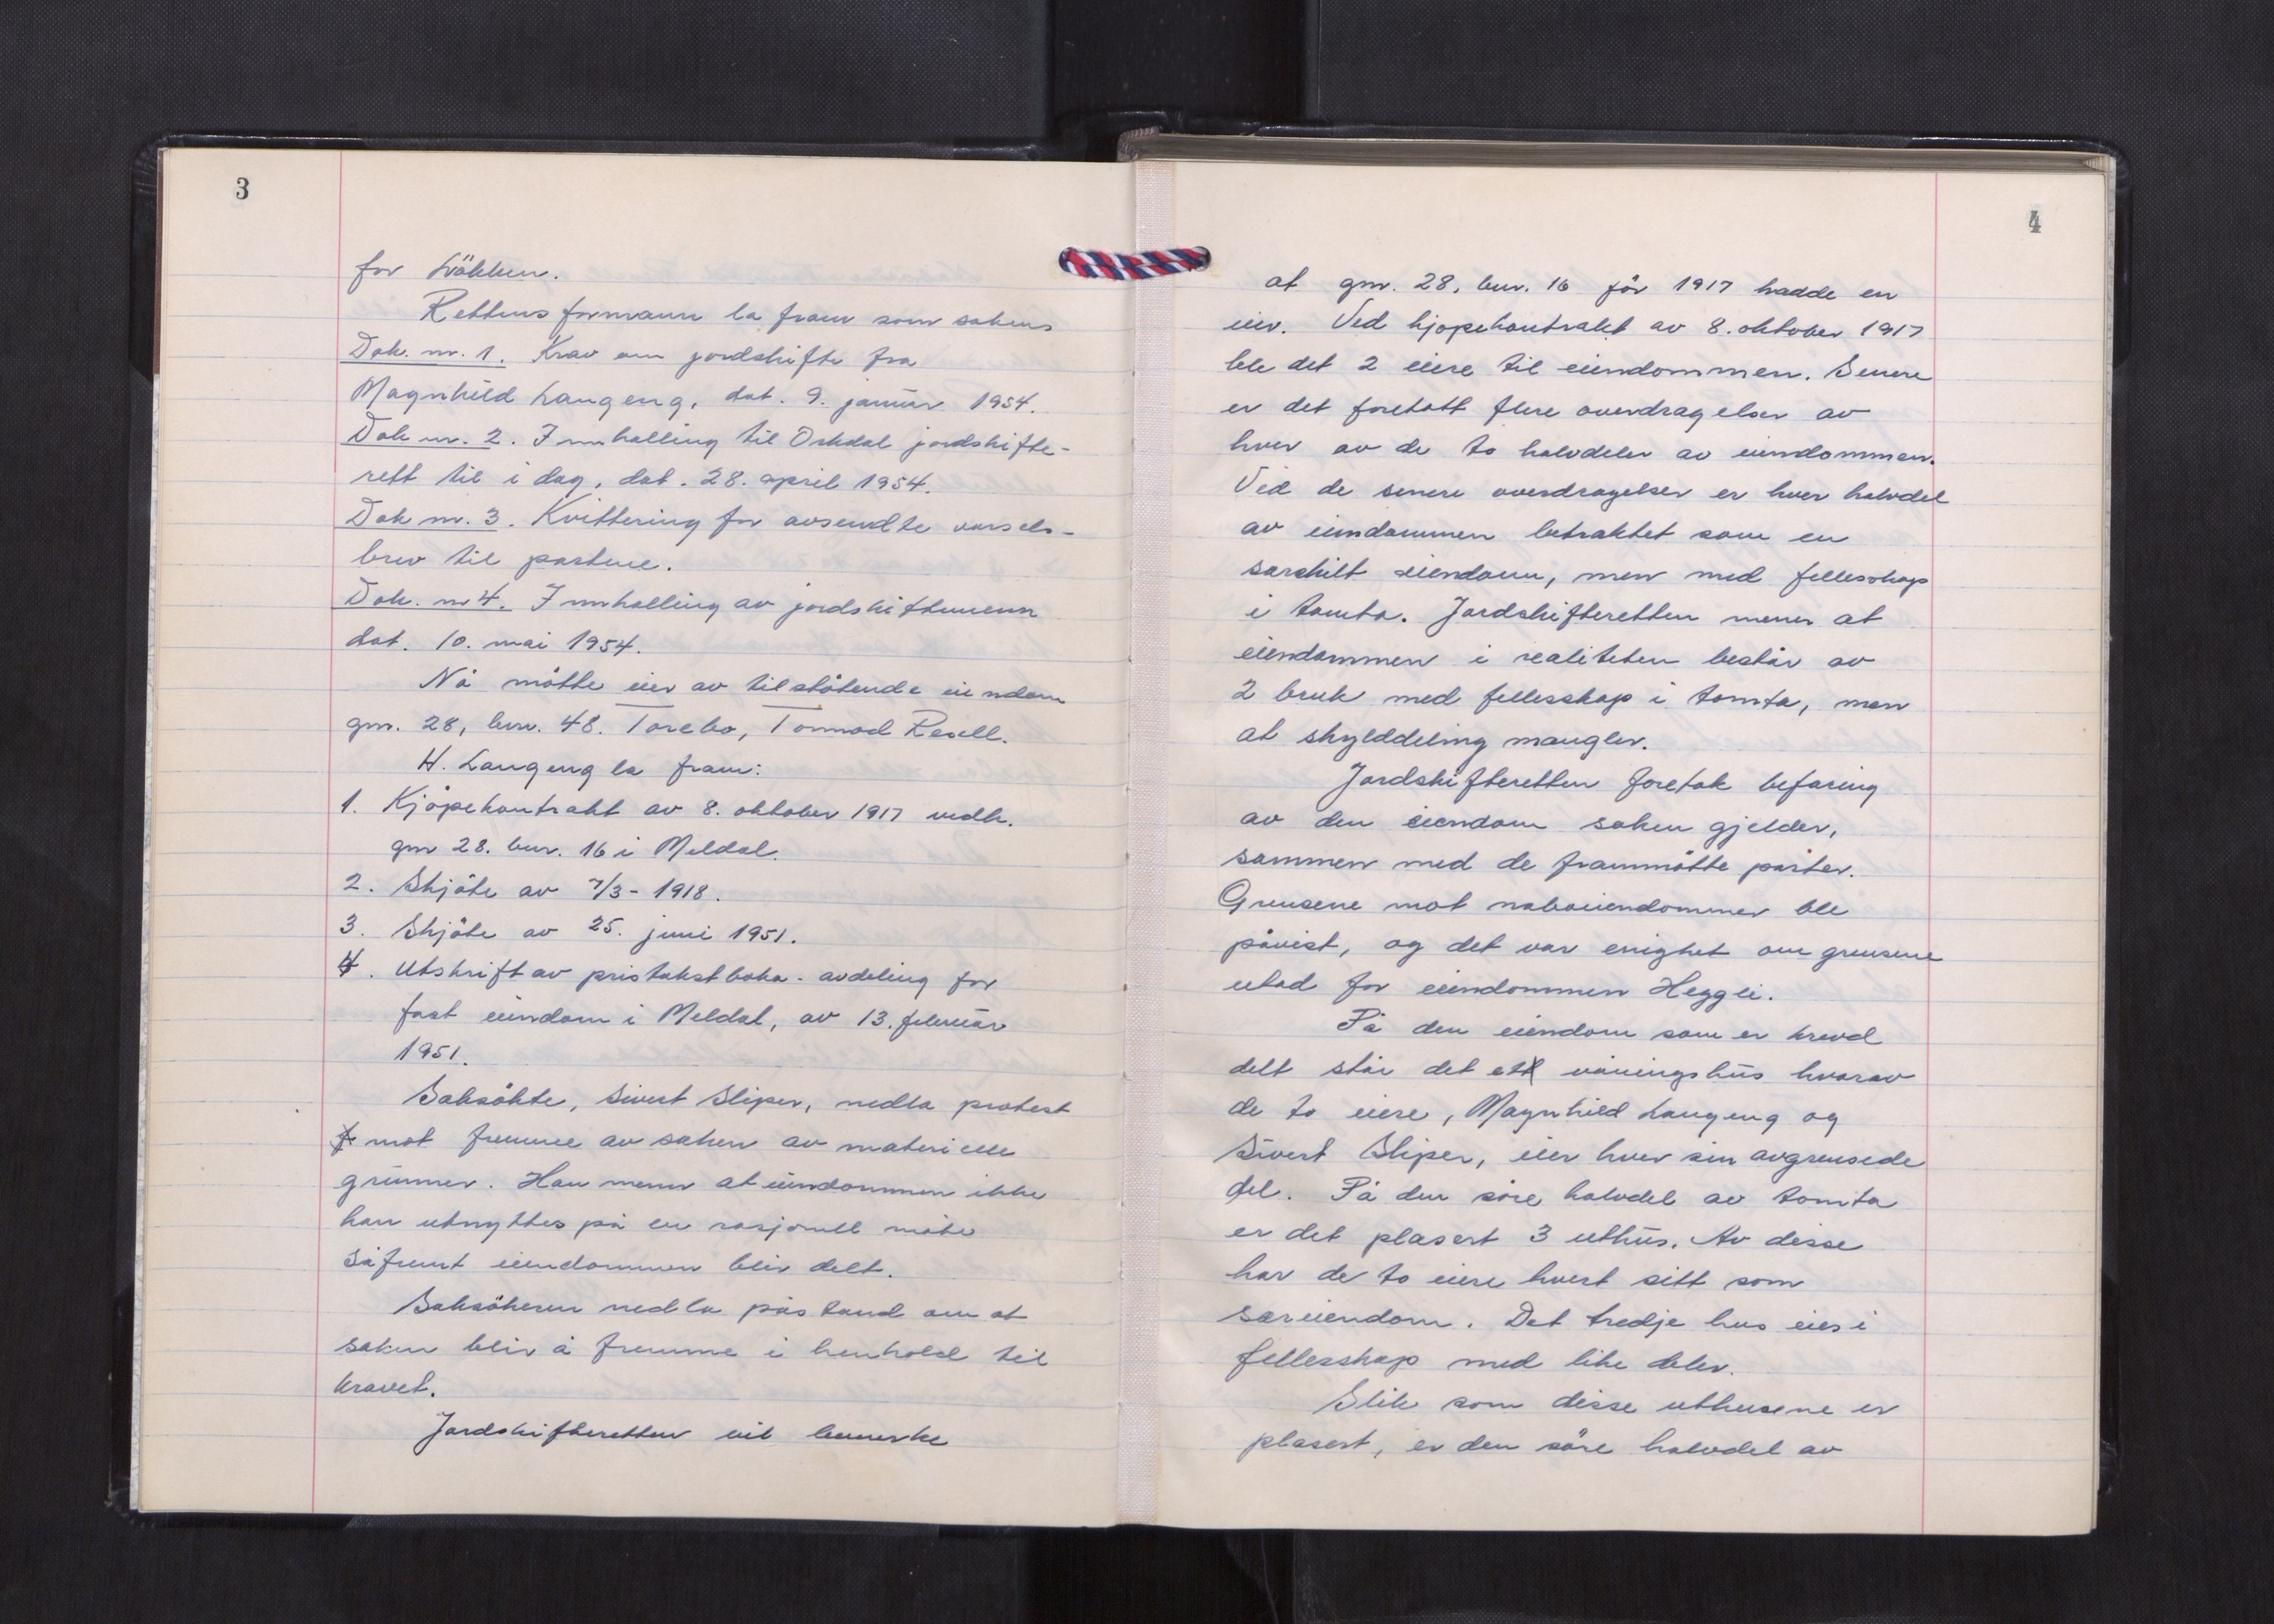 3
for Løkken.
Rettens formann la fram som sakens
Dok. nr. 1. Krav om jordskifte fra
Magnhild Langeng, dat. 9. januar 1954.
Dok nr. 2. Innkalling til Orkdal jordskifte-
rett til i dag, dat. 28. april 1954.
Dok nr. 3. Kvittering for avsendte varsels-
brev til partene.
Dok. nr 4. Innkalling av jordskiftemenn
dat. 10. mai 1954.
Nå møtte eier av tilstøtende eiendom
gnr. 28, bnr. 48. Torebo, Tormod Resell.
H. Langeng la fram:
1. Kjøpekontrakt av 8. oktober 1917 vedk.
gnr 28. bnr. 16 i Meldal.
2. Skjøte av 7/3 - 1918.
3. Skjøte av 25. juni 1951.
4. Utskrift av pristakstboka - avdeling for
fast eiendom i Meldal, av 13. februar
1951.
Saksøkte, Sivert Sliper, nedla protest
mot fremme av saken av materielle
grunner. Han mener at eiendommen ikke
kan utnyttes på en rasjonell måte
såfremt eiendommen blir delt.
Saksøkeren nedla påstand om at
saken blir å fremme i henhold til
kravet.
Jordskifteretten vil bemerke
4
at gnr. 28, bnr. 16 før 1917 hadde en
eier. Ved kjøpekontrakt av 8. oktober 1917
ble det 2 eiere til eiendommen. Senere
er det foretatt flere overdragelser av
hver av de to halvdeler av eiendommen.
Ved de senere overdragelser er hver halvdel
av eiendommen betraktet som en
særskilt eiendom, men med fellesskap
i tomta. Jordskifteretten mener at
eiendommen i realiteten består av
2 bruk med fellesskap i tomta, men
at skylddeling mangler.
Jordskifteretten foretok befaring
av den eiendom saken gjelder,
sammen med de frammøtte parter.
Grensene mot naboeiendommer ble
påvist, og det var enighet om grensene
utad for eiendommen Heggli.
På den eiendom som er krevd
delt står det ett våningshus hvorav
de to eiere, Magnhild Langeng og
Sivert Sliper, eier hver sin avgrensede
del. På den søre halvdel av tomta
er det plasert 3 uthus. Av disse
har de to eiere hvert sitt som
særeiendom. Det tredje hus eies i
fellesskap med like deler.
Slik som disse uthusene er
plasert, er den søre halvdel av